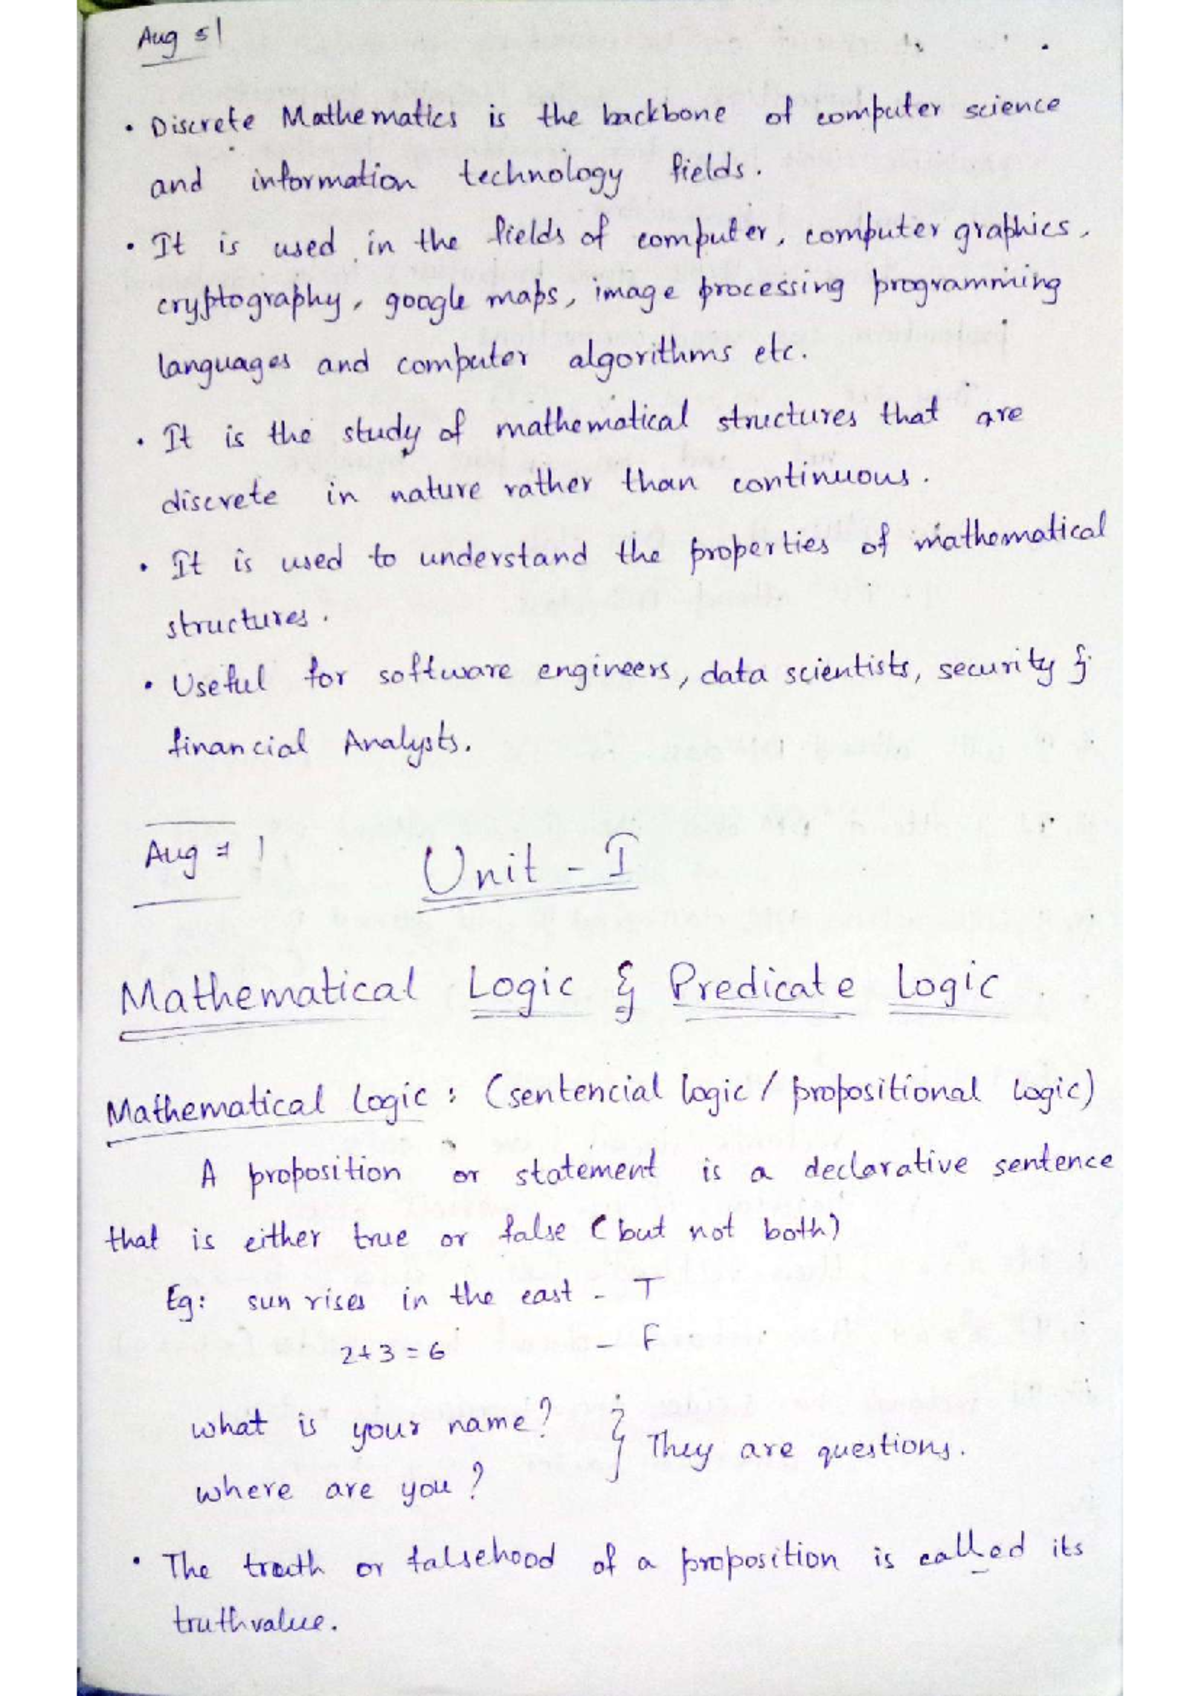 Aug 5|
• Discrete Mathematics is the backbone of computer science
and information technology fields.
• It is used in the fields of computer, computer graphics,
cryptography, google maps, image processing programming
languages and computer algorithms etc.
• It is the study of mathematical structures that are
discrete in nature rather than continuous.
• It is used to understand the properties of mathematical
structures.
• Useful for software engineers, data scientists, security &
financial Analysts.
Aug 7|
Unit - I
Mathematical Logic & Predicate Logic
Mathematical Logic : (sentencial logic / propositional logic)
A proposition or statement is a declarative sentence
that is either true or false (but not both)
Eg: sun rises in the east - T
2+3 = 6 - F
what is your name? } They are questions.
where are you?
• The truth or falsehood of a proposition is called its
truthvalue.